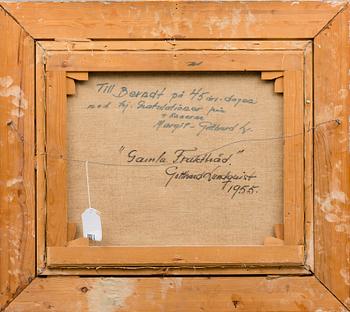 Till Berndt på 45 års-dagen
med hj. Gratulationer från
Margit - Gotthard L.
"Gamla Fruktträd."
Gotthard Lundquist
1955.